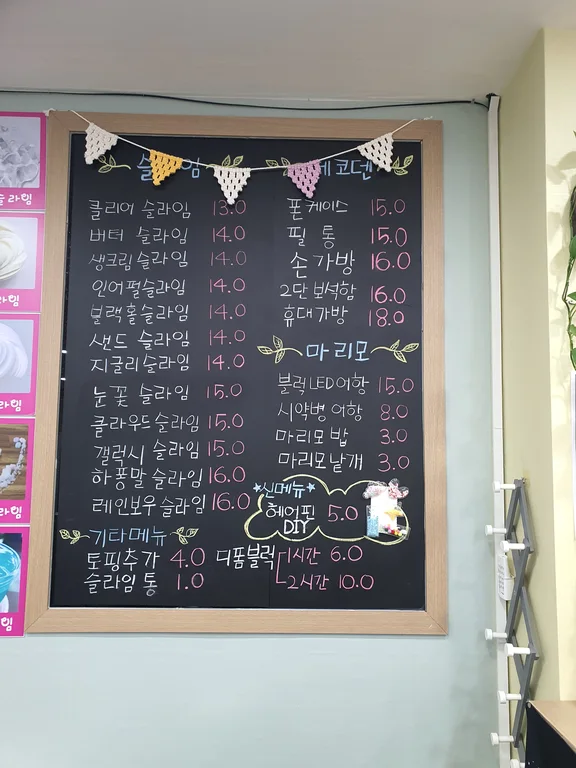 슬라임
클리어 슬라임 13.0
버터 슬라임 14.0
생크림 슬라임 14.0
인어펄슬라임 14.0
블랙홀슬라임 14.0
샌드 슬라임 14.0
지글리 슬라임 14.0
눈꽃 슬라임 15.0
클라우드 슬라임 15.0
갤럭시 슬라임 15.0
하퐁말 슬라임 16.0
레인보우 슬라임 16.0
기타메뉴
토핑추가 4.0
슬라임 통 1.0
데코덴
폰케이스 15.0
필통 15.0
손가방 16.0
2단 보석함 16.0
휴대가방 18.0
마리모
블럭LED어항 15.0
시약병 어항 8.0
마리모 밥 3.0
마리모낱개 3.0
신메뉴
헤어핀 5.0
DIY
디폼블럭 1시간 6.0
2시간 10.0
슬라임
라임
라임
라임
임